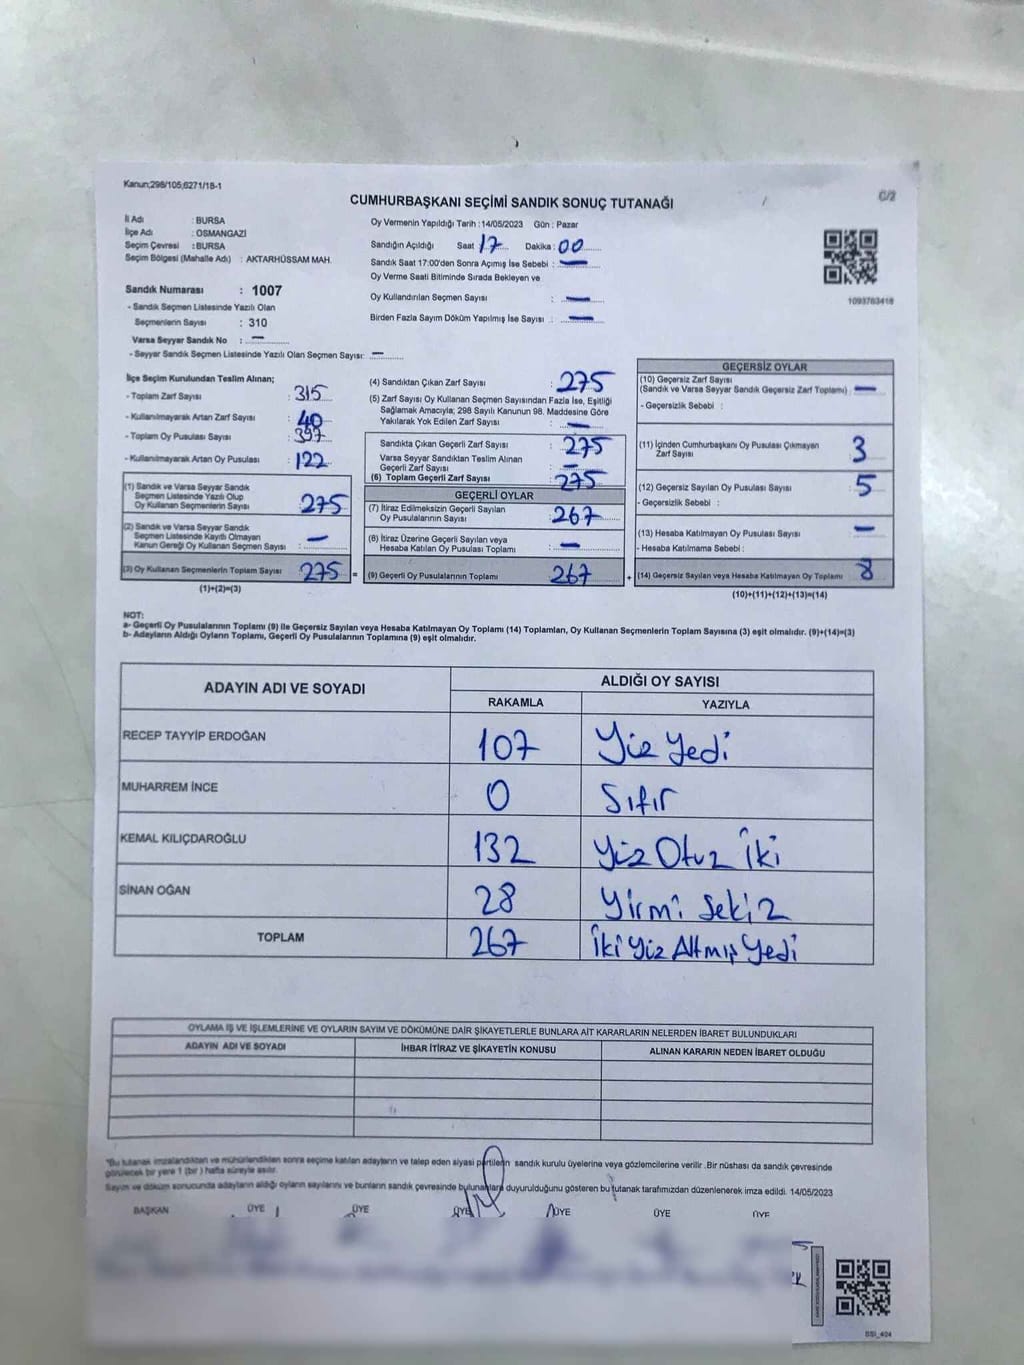 Kanun;298/105;6271/18-1
C/2
CUMHURBAŞKANI SEÇİMİ SANDIK SONUÇ TUTANAĞI
İl Adı : BURSA
İlçe Adı : OSMANGAZİ
Seçim Çevresi : BURSA
Seçim Bölgesi (Mahalle Adı) : AKTARHÜSSAM MAH.
Sandık Numarası : 1007
- Sandık Seçmen Listesinde Yazılı Olan
Seçmenlerin Sayısı : 310
Varsa Seyyar Sandık No : —
- Seyyar Sandık Seçmen Listesinde Yazılı Olan Seçmen Sayısı: —
Oy Vermenin Yapıldığı Tarih : 14/05/2023 Gün : Pazar
Sandığın Açıldığı Saat 17 Dakika : 00
Sandık Saat 17:00'den Sonra Açımış İse Sebebi : —
Oy Verme Saati Bitiminde Sırada Bekleyen ve
Oy Kullandırılan Seçmen Sayısı : —
Birden Fazla Sayım Döküm Yapılmış İse Sayısı : —
1093763418
İlçe Seçim Kurulundan Teslim Alınan;
- Toplam Zarf Sayısı : 315
- Kullanılmayarak Artan Zarf Sayısı : 40
- Toplam Oy Pusulası Sayısı : 397
- Kullanılmayarak Artan Oy Pusulası : 122
(1) Sandık ve Varsa Seyyar Sandık
Seçmen Listesinde Yazılı Olup
Oy Kullanan Seçmenlerin Sayısı : 275
(2) Sandık ve Varsa Seyyar Sandık
Seçmen Listesinde Kayıtlı Olmayan
Kanun Gereği Oy Kullanan Seçmen Sayısı : —
(3) Oy Kullanan Seçmenlerin Toplam Sayısı : 275
(1)+(2)=(3)
(4) Sandıktan Çıkan Zarf Sayısı : 275
(5) Zarf Sayısı Oy Kullanan Seçmen Sayısından Fazla İse, Eşitliği
Sağlamak Amacıyla; 298 Sayılı Kanunun 98. Maddesine Göre
Yakılarak Yok Edilen Zarf Sayısı : —
Sandıkta Çıkan Geçerli Zarf Sayısı : 275
Varsa Seyyar Sandıktan Teslim Alınan
Geçerli Zarf Sayısı : —
(6) Toplam Geçerli Zarf Sayısı : 275
GEÇERLİ OYLAR
(7) İtiraz Edilmeksizin Geçerli Sayılan
Oy Pusulalarının Sayısı : 267
(8) İtiraz Üzerine Geçerli Sayılan veya
Hesaba Katılan Oy Pusulası Toplamı : —
= (9) Geçerli Oy Pusulalarının Toplamı 267
GEÇERSİZ OYLAR
(10) Geçersiz Zarf Sayısı
(Sandık ve Varsa Seyyar Sandık Geçersiz Zarf Toplamı) : —
- Geçersizlik Sebebi :
(11) İçinden Cumhurbaşkanı Oy Pusulası Çıkmayan
Zarf Sayısı : 3
(12) Geçersiz Sayılan Oy Pusulası Sayısı : 5
- Geçersizlik Sebebi :
(13) Hesaba Katılmayan Oy Pusulası Sayısı : —
- Hesaba Katılmama Sebebi :
+ (14) Geçersiz Sayılan veya Hesaba Katılmayan Oy Toplamı 8
(10)+(11)+(12)+(13)=(14)
NOT:
a- Geçerli Oy Pusulalarının Toplamı (9) ile Geçersiz Sayılan veya Hesaba Katılmayan Oy Toplamı (14) Toplamları, Oy Kullanan Seçmenlerin Toplam Sayısına (3) eşit olmalıdır. (9)+(14)=(3)
b- Adayların Aldığı Oyların Toplamı, Geçerli Oy Pusulalarının Toplamına (9) eşit olmalıdır.
ADAYIN ADI VE SOYADI ALDIĞI OY SAYISI
RAKAMLA YAZIYLA
RECEP TAYYİP ERDOĞAN 107 Yüz Yedi
MUHARREM İNCE 0 Sıfır
KEMAL KILIÇDAROĞLU 132 Yüz Otuz İki
SİNAN OĞAN 28 Yirmi Sekiz
TOPLAM 267 İki Yüz Altmış Yedi
OYLAMA İŞ VE İŞLEMLERİNE VE OYLARIN SAYIM VE DÖKÜMÜNE DAİR ŞİKAYETLERLE BUNLARA AİT KARARLARIN NELERDEN İBARET BULUNDUKLARI
ADAYIN ADI VE SOYADI İHBAR İTİRAZ VE ŞİKAYETİN KONUSU ALINAN KARARIN NEDEN İBARET OLDUĞU
*Bu tutanak imzalandıktan ve mühürlendikten sonra seçime katılan adayların ve talep eden siyasi partilerin sandık kurulu üyelerine veya gözlemcilerine verilir .Bir nüshası da sandık çevresinde
görülecek bir yere 1 (bir ) hafta süreyle asılır.
Sayım ve döküm sonucunda adayların aldığı oyların sayılarını ve bunların sandık çevresinde bulunanlara duyurulduğunu gösteren bu tutanak tarafımızdan düzenlenerek imza edildi. 14/05/2023
BAŞKAN ÜYE ÜYE ÜYE ÜYE ÜYE ÜYE
SSİ_404